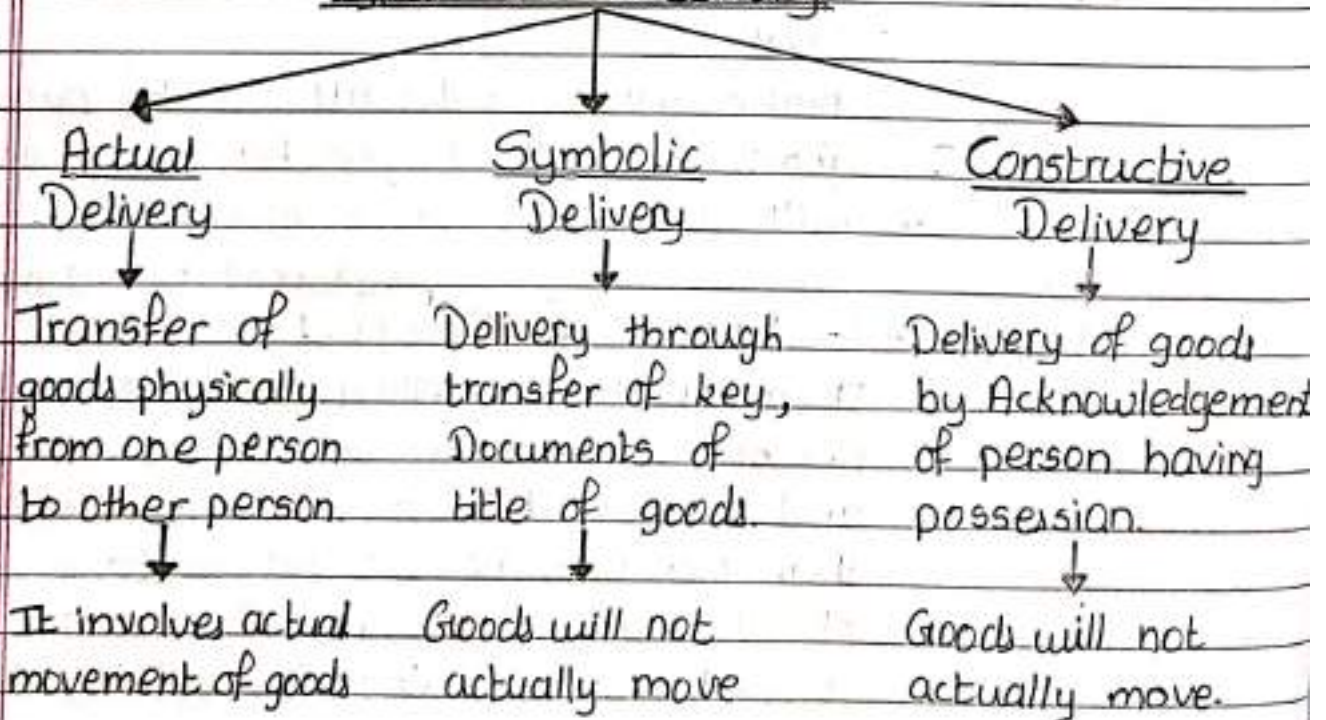 Actual
Delivery
Transfer of
goods physically
from one person
to other person.
It involves actual
movement of goods
Symbolic
Delivery
Delivery through
transfer of key,
Documents of
title of goods.
Goods will not
actually move
Constructive
Delivery
Delivery of goods
by Acknowledgement
of person having
possession.
Goods will not
actually move.